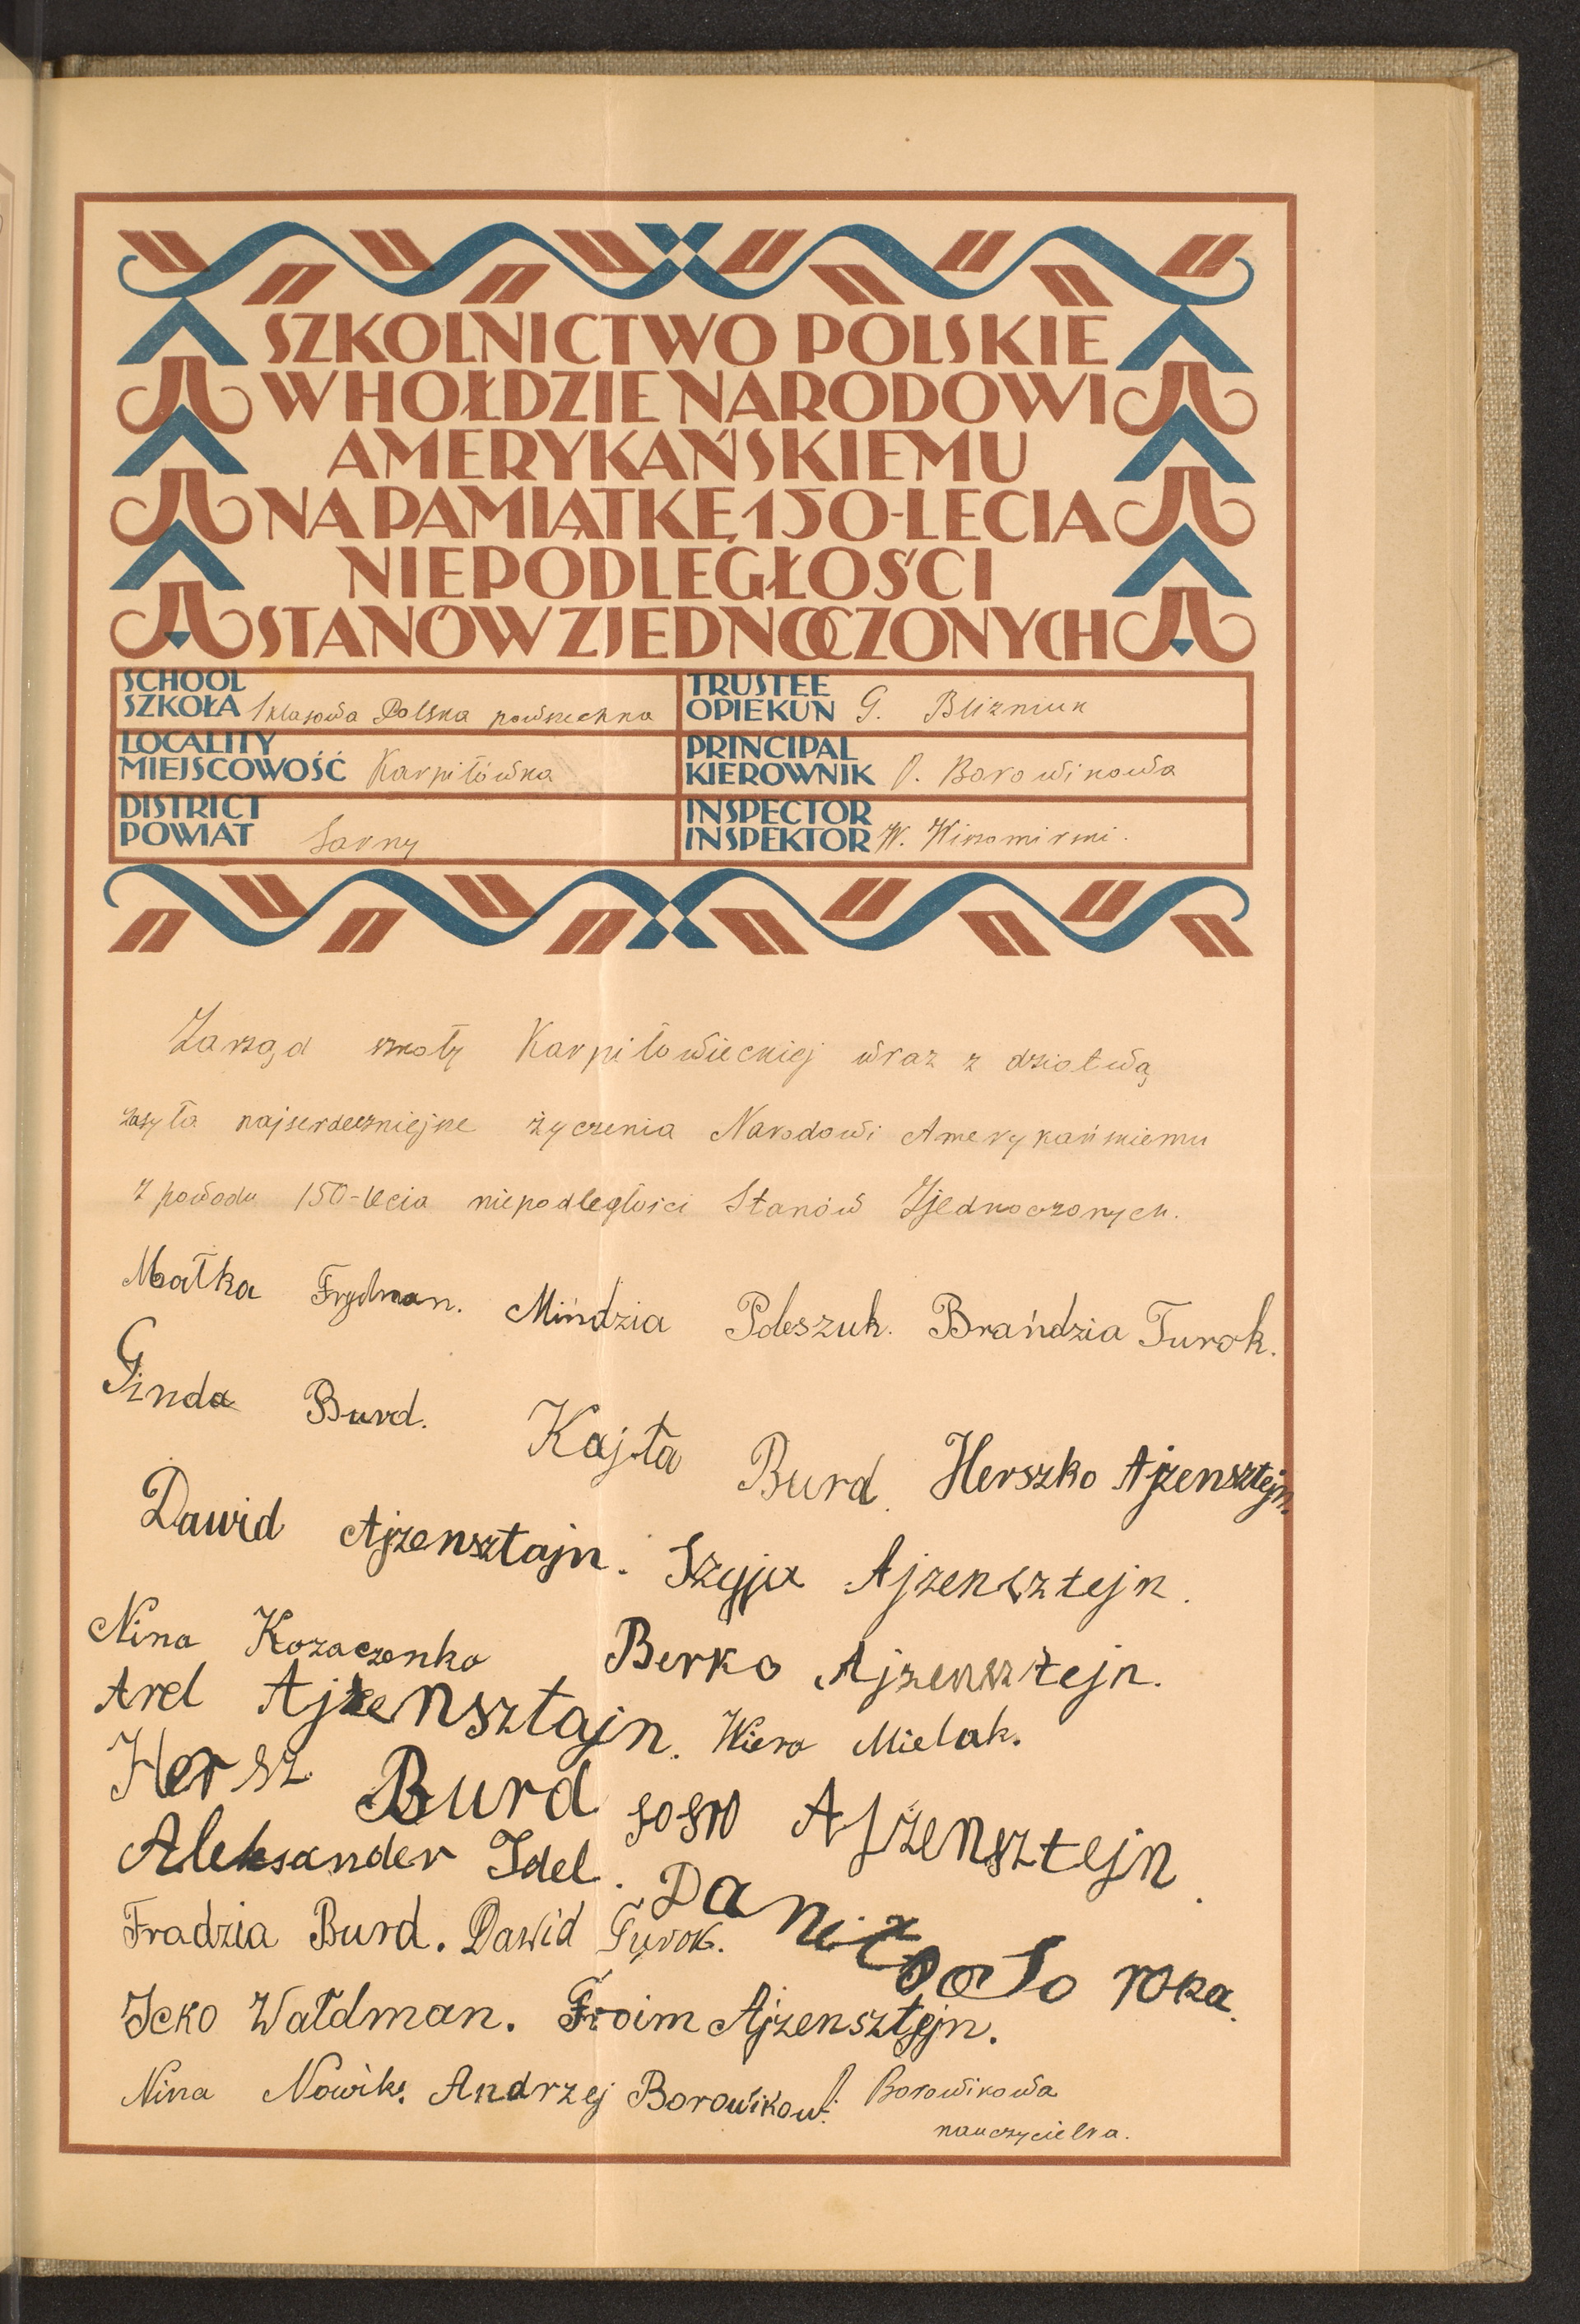 SZKOLNICTWO POLSKIE
W HOŁDZIE NARODOWI
AMERYKAŃSKIEMU
NA PAMIĄTKĘ 150-LECIA
NIEPODLEGŁOŚCI
STANÓW ZJEDNOCZONYCH
SCHOOL
SZKOŁA 1 klasowa Polska powszechna
TRUSTEE
OPIEKUN G. Blizniuk
LOCALITY
MIEJSCOWOŚĆ Karpiłówka
PRINCIPAL
KIEROWNIK O. Borowikowa
DISTRICT
POWIAT Sarny
INSPECTOR
INSPEKTOR W.
Zarząd szkoły Karpiłowieckiej wraz z dziatwą
zasyła najserdeczniejsze życzenia Narodowi Amerykańskiemu
z powodu 150-lecia niepodległości Stanów Zjednoczonych.
Małka Frydman. Mińdzia Poleszuk. Brańdzia Turok.
Ginda Burd. Kajła Burd. Herszko Ajzensztejn.
Dawid Ajzensztajn. Szyja Ajzensztejn.
Nina Kozaczenko Berko Ajzensztejn.
Arel Ajzensztajn. Wiera Mielak.
Hersz Burd Ajzensztejn.
Aleksander Idel. roka.
Fradzia Burd. Dawid Turok.
Icko Wałdman. Froim Ajzensztejn.
Nina Nowik. Andrzej Borowikow. O. Borowikowa
nauczycielka.